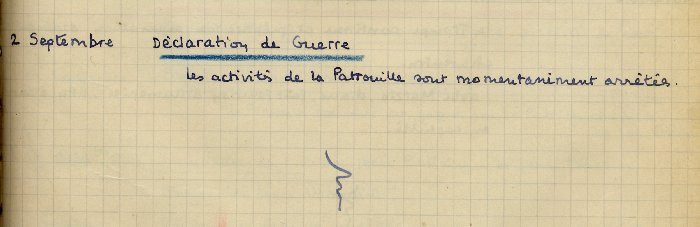 2 Septembre Déclaration de Guerre
Les activités de la Patrouille sont momentanément arrêtés.